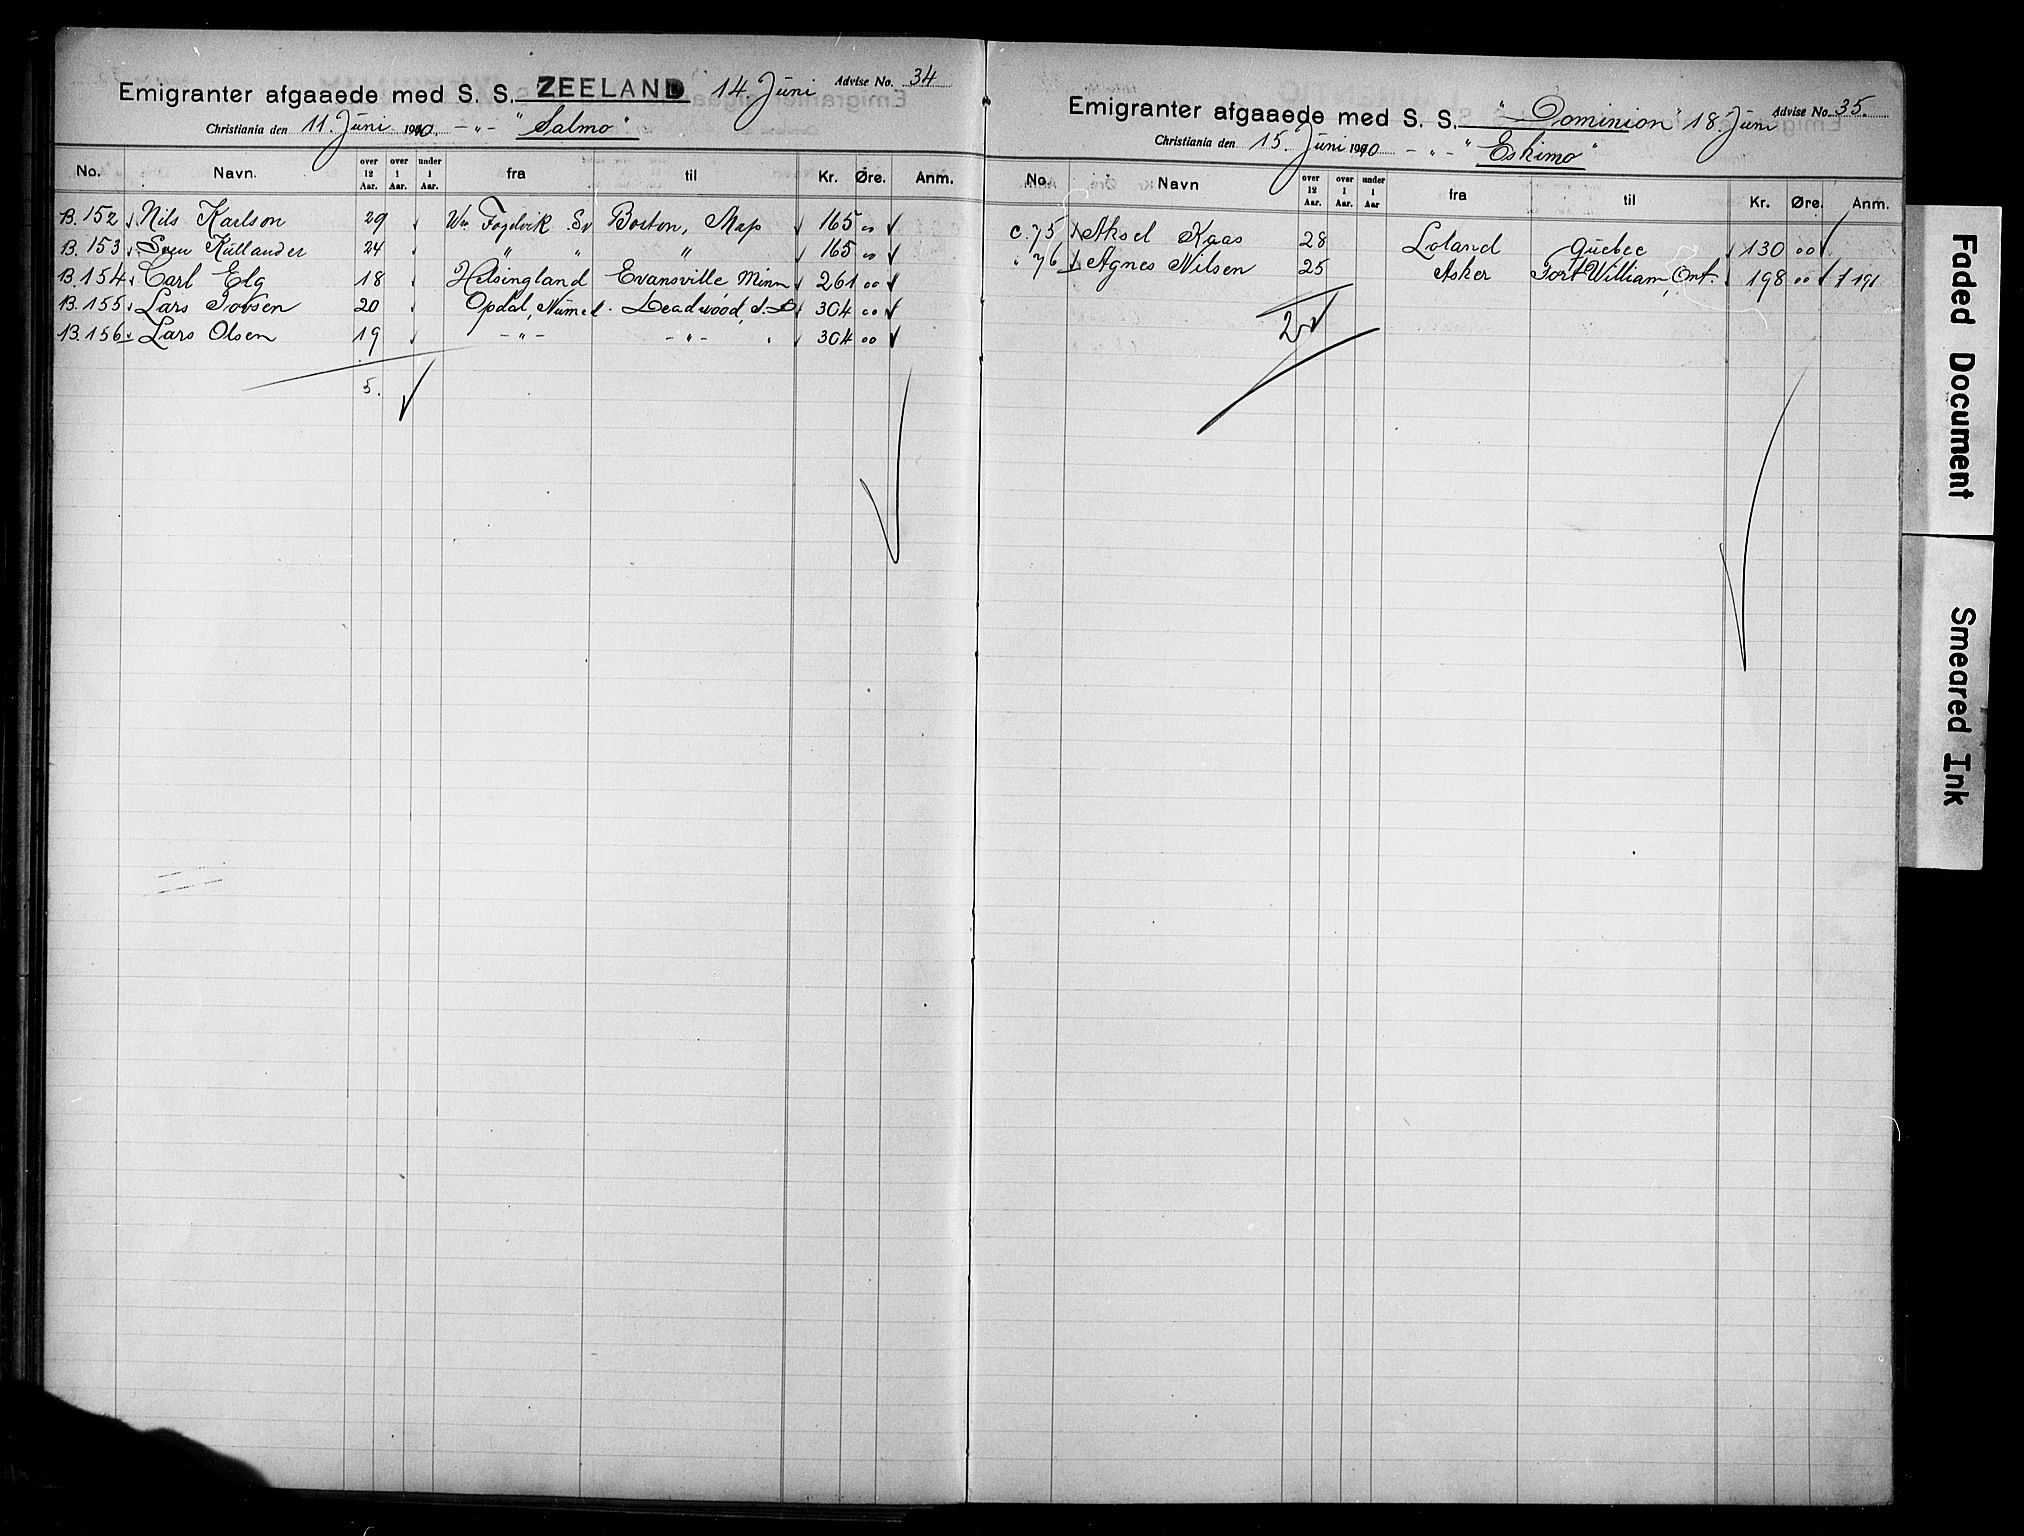 Emigranter afgaaede med S. S. ZEELAND 14. Juni Advise No. 34
Christiania den 11. Juni 1910 - " - "Salmo"
No. Navn. over 12 Aar. over 1 Aar. under 1 Aar. fra til Kr. Øre. Anm.
B. 152 Nils Karlson 29 Fogelvik Sv Boston, Mass 165 00
B. 153 Sven Kullander 24 " " " 165 00
B. 154 Carl Elg 18 Helsingland Evansville Minn 261 00
B. 155 Lars Tovsen 20 Opdal, Numed. Deadwood, S. D 304 00
B. 156 Lars Olsen 19 - " - - " - 304 00
5.
Emigranter afgaaede med S. S. "Dominion" 18. Juni Advise No. 35.
Christiania den 15. Juni 1910 - " - "Eskimo"
No. Navn over 12 Aar. over 1 Aar. under 1 Aar fra til Kr. Øre. Anm.
C. 75 Aksel Kaas 28 Loland Quebec 130 00
" 76 Agnes Nilsen 25 Asker Fort William, Ont. 198 00 191
2
Faded Document
Smeared Ink